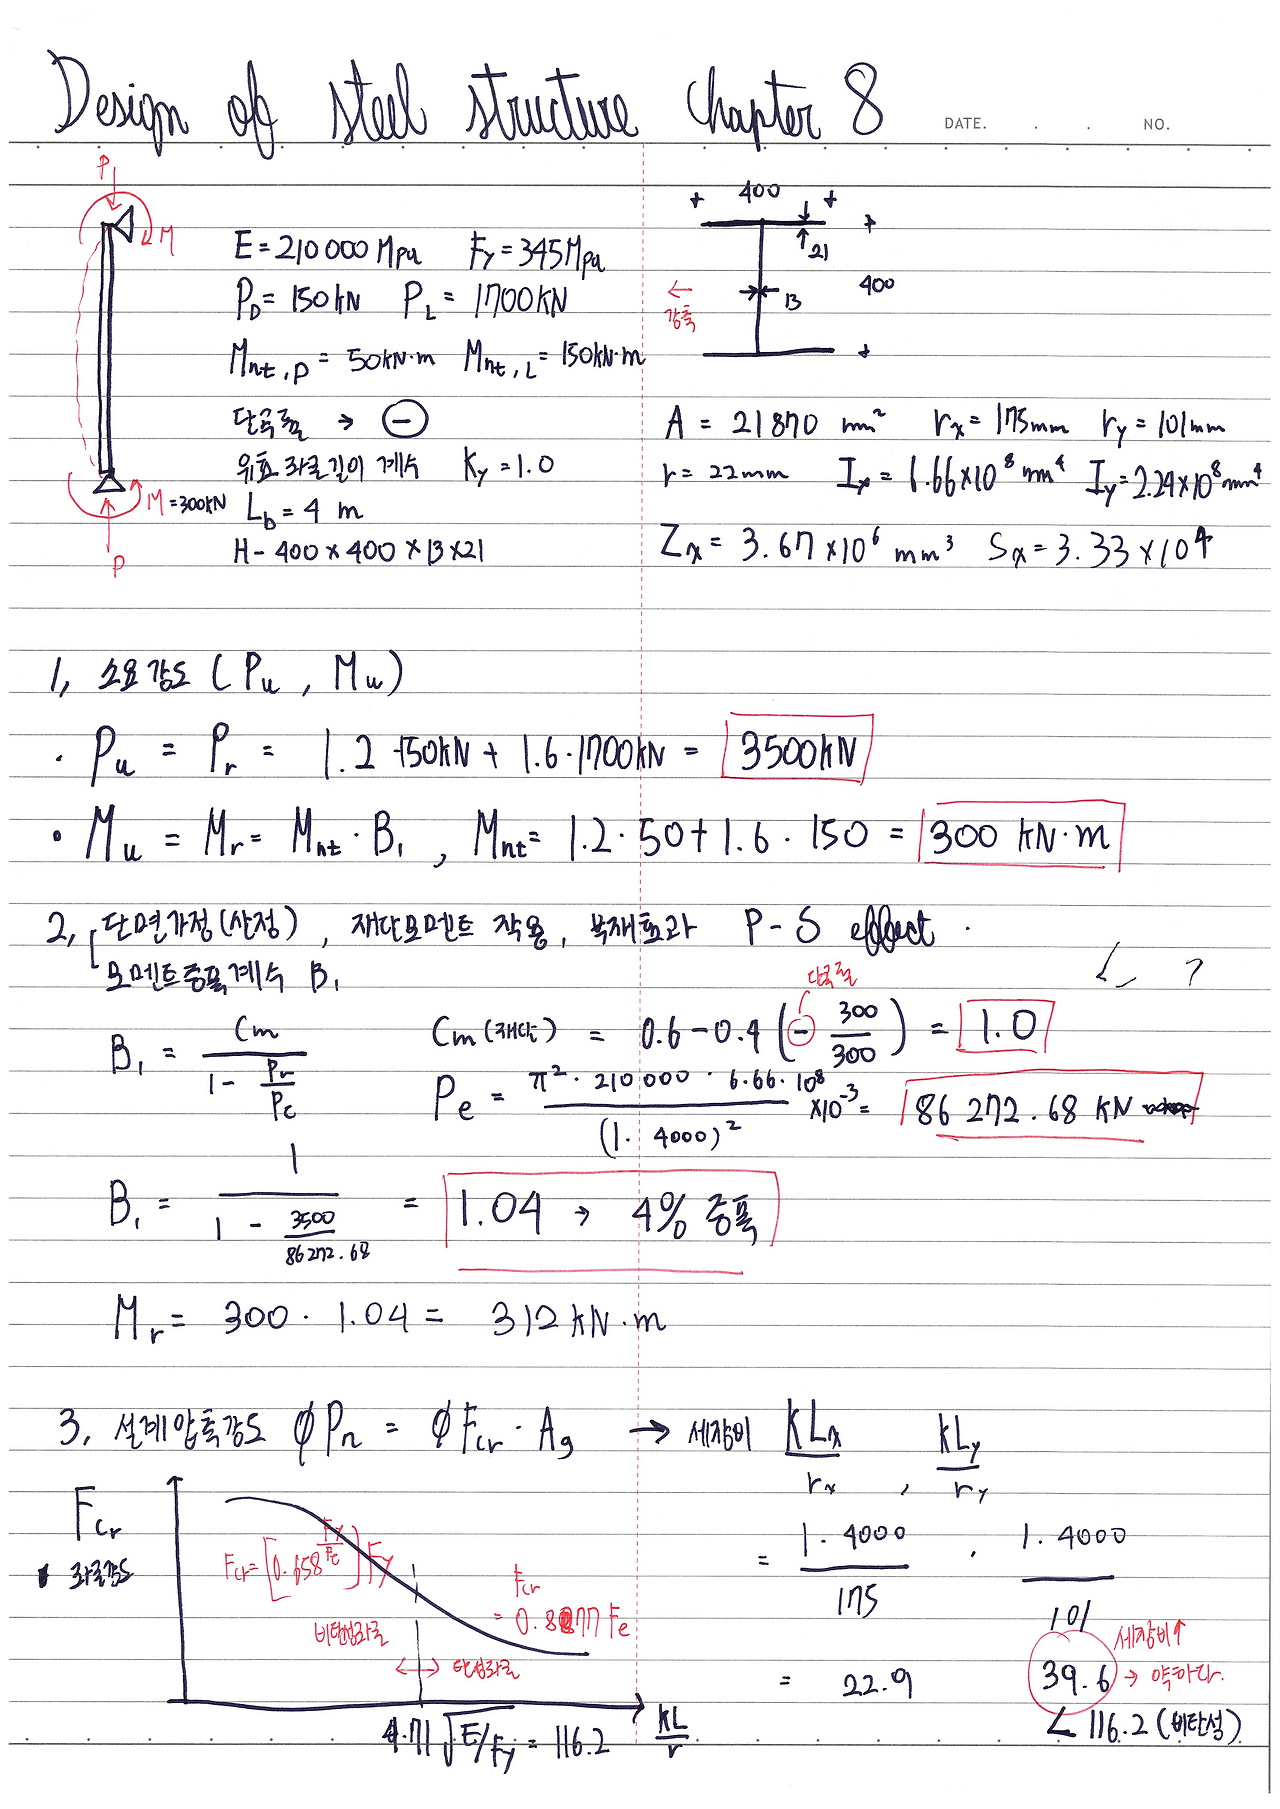 Design of steel structure chapter 8
DATE. . . NO.
P
M
E = 210000 Mpa Fy = 345Mpa
P_D = 150kN P_L = 1700KN
Mnt,D = 50kN·m Mnt,L = 150kN·m
단곡률 → ⊖
유효좌굴길이 계수 Ky = 1.0
M = 300kN
L_b = 4 m
H - 400 × 400 × 13 × 21
P
400
21
400
13
← 강축
A = 21870 mm² r_x = 175mm r_y = 101mm
r = 22mm I_x = 6.66×10⁸ mm⁴ I_y = 2.24×10⁸ mm⁴
Z_x = 3.67×10⁶ mm³ S_x = 3.33×10⁴
1, 소요강도 ( Pu , Mu )
· Pu = Pr = 1.2·150kN + 1.6·1700kN = 3500kN
· Mu = Mr = Mnt · B₁ , Mnt = 1.2·50 + 1.6·150 = 300 kN·m
2, 단면가정(산정) , 재단모멘트 작용, 부재효과 P-δ effect .
모멘트증폭계수 B₁
단곡률
B₁ = Cm / (1 - Pr/Pc) Cm (재단) = 0.6 - 0.4 ( - 300/300 ) = 1.0
Pe = π² · 210000 · 6.66 · 10⁸ / (1 · 4000)² ×10⁻³ = 86272.68 KN
B₁ = 1 / (1 - 3500/86272.68) = 1.04 → 4% 증폭
Mr = 300 · 1.04 = 312 kN·m
3, 설계압축강도 φPn = φFcr · Ag → 세장비 KLx/rx , KLy/ry
Fcr
좌굴강도
Fcr = [0.658^(Fy/Fe)] Fy
Fcr = 0.877 Fe
비탄성좌굴
탄성좌굴
4.71 √E/Fy = 116.2 KL/r
= 1 · 4000 / 175 , 1 · 4000 / 101
= 22.9 39.6
세장비↑ → 약하다.
< 116.2 (비탄성)